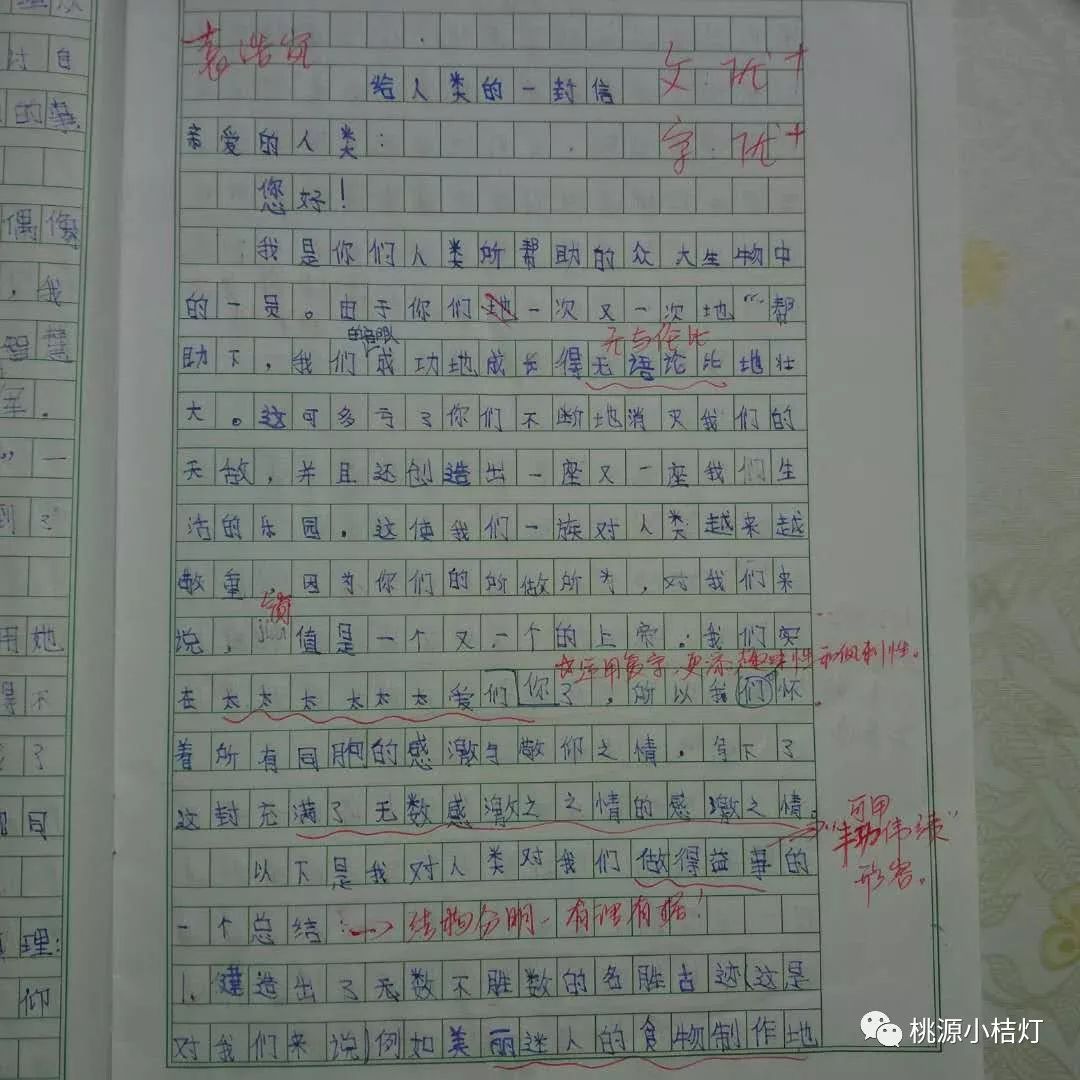 袁浩
文:优+
给人类的一封信
亲爱的人类:
字:优+
您好!
我是你们人类所帮助的众大生物中
的一员。由于你们地一次又一次地“帮
的音眼
无与伦比
助下,我们成功地成长得无语论比地壮
大。这可多亏了你们不断地消灭我们的
天敌,并且还创造出一座又一座我们生
活的乐园。这使我们一族对人类越来越
敬重,因为你们的所做所为,对我们来
说,值是一个又一个的上帝。我们实
运用复字,更添趣味性和讽刺性。
在太太太太太太爱们你了,所以我们怀
着所有同胞的感激与敬仰之情,写下了
这封充满了无数感激之之情的感激之情。
可用
“丰功伟绩”
形容。
以下是我对人类对我们做得益事的
一个总结:
→结构分明,有理有据!
1.建造出了无数不胜数的名胜古迹(这是
对我们来说)例如美丽迷人的食物制作地
过自
的事
偶像
,我
智慧
里.
”一
到了
用她
得不
了
同
理:
仰
桃源小桔灯